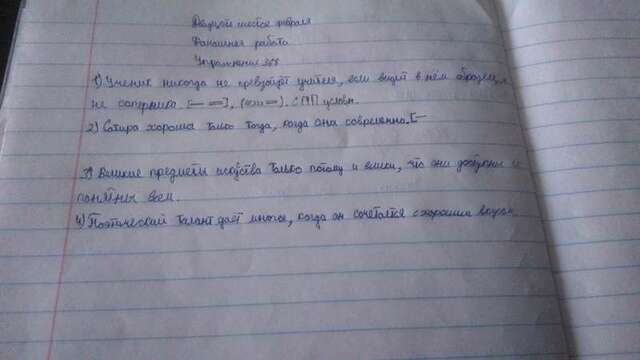 Двадцать шестое февраля
Домашняя работа
Упражнение 368
1) Ученик никогда не превзойдёт учителя, если видит в нём образец, а
не соперника. [— =], (если =). СПП условн.
2) Сатира хороша только тогда, когда она современна. [—
3) Великие предметы искусства только потому и велики, что они доступны и
понятны всем.
4) Поэтический талант даёт многое, когда он сочетается с хорошим вкусом